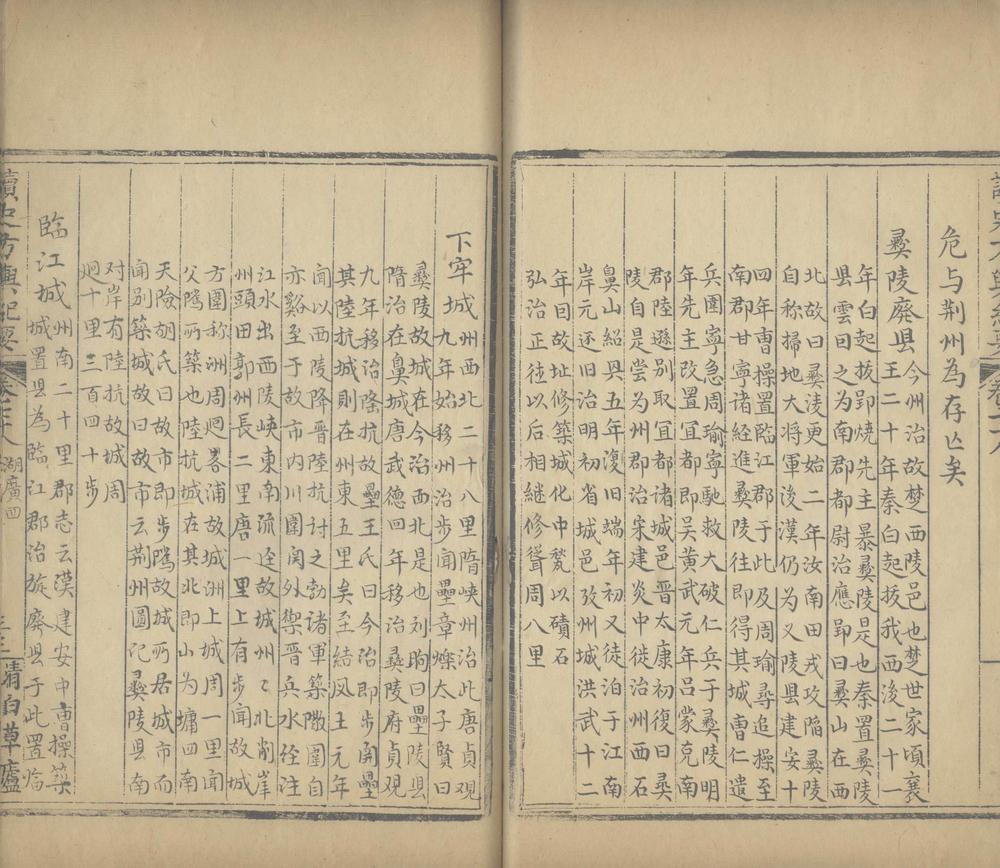 危与荆州為存亡矣
彛陵廃县
今州治故楚西陵邑也楚世家頃襄
王二十年秦白起拔我西後二十一
年白起拔郢焼先主暴彛陵是也秦置彛陵
县雲曰之为南郡都尉治應郢曰彛山在西
北故曰彛淩更始二年汝南田戎攻陥彛陵
自称掃地大将軍後漢仍为又陵县建安十
四年曹操置臨江郡于此及周瑜尋追操至
南郡甘寧诸経進彛陵往即得其城曹仁遣
兵圍寧急周瑜寧馳救大破仁兵于彛陵明
年先主改置宜都即吴黄武元年吕蒙克南
郡陸遜别取冝都诸城邑晋太康初復曰彛
陵自是尝为州郡旧治宋建炎中徙治州西石
鼻山紹興五年復旧端年初又徙泊于江南
岸元还旧治明初省城邑攷州城洪武十二
年因故址修築城化中甃以磧石
弘治正徳以后相継修聳周八里
下牢城
州西北二十八里隋峡州治此唐貞观
九年始移州治步闻壘章爍太子賢曰
彛陵故城在今治西北是也刘昫曰壘陵县
隋治在鼻城唐武徳回年移治彛陵府貞观
九年移治陸抗故壘王氏曰今治即步闸壘
其陸抗城則在州東五里矣至結凤王元年
闻以西陵降晋陸抗討之勃诸軍築隞圍自
亦谿至于故市内川圍闲外禦晋兵水経注
江水出西陵峡東南流迳故城州〻北削岸
州頭田郭州長二里唐一里上有步闻故城
方圍称洲周迴畧浦故城洲上城周一里闻
父隲所築也陸抗城在其北即山为墉四南
天険胡氏曰故市即步隲故城所居城市而
闻别築城故曰故市云荆州圖记彛陵县南
对岸有陸抗故城周
迥十里三百四十步
臨江城
州南二十里郡志云漢建安中曹操築
城置县為臨江郡治旋廃县于此置临
讀史方輿紀要
卷七十八
湖廣四
三三
清白草廬